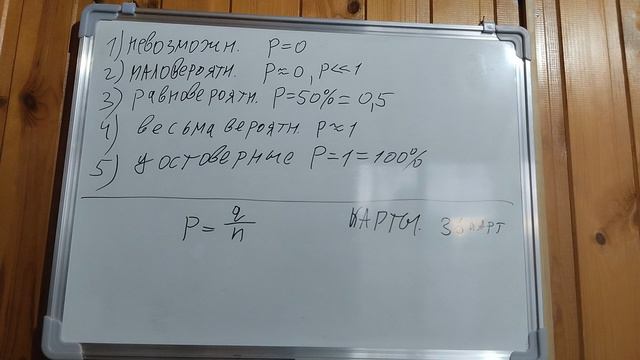 1) невозможн. P=0
2) маловероятн. P≈0, P<<1
3) равновероятн. P=50%=0,5
4) весьма вероятн. P≈1
5) достоверные P=1=100%
P = q/n КАРТЫ. 36 КАРТ